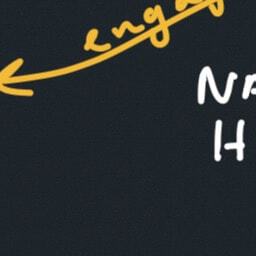 engag
NA
H